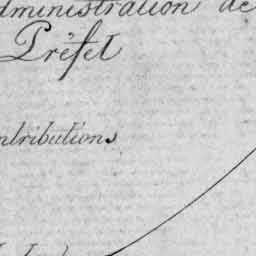 dministration de
Préfet
ntributions